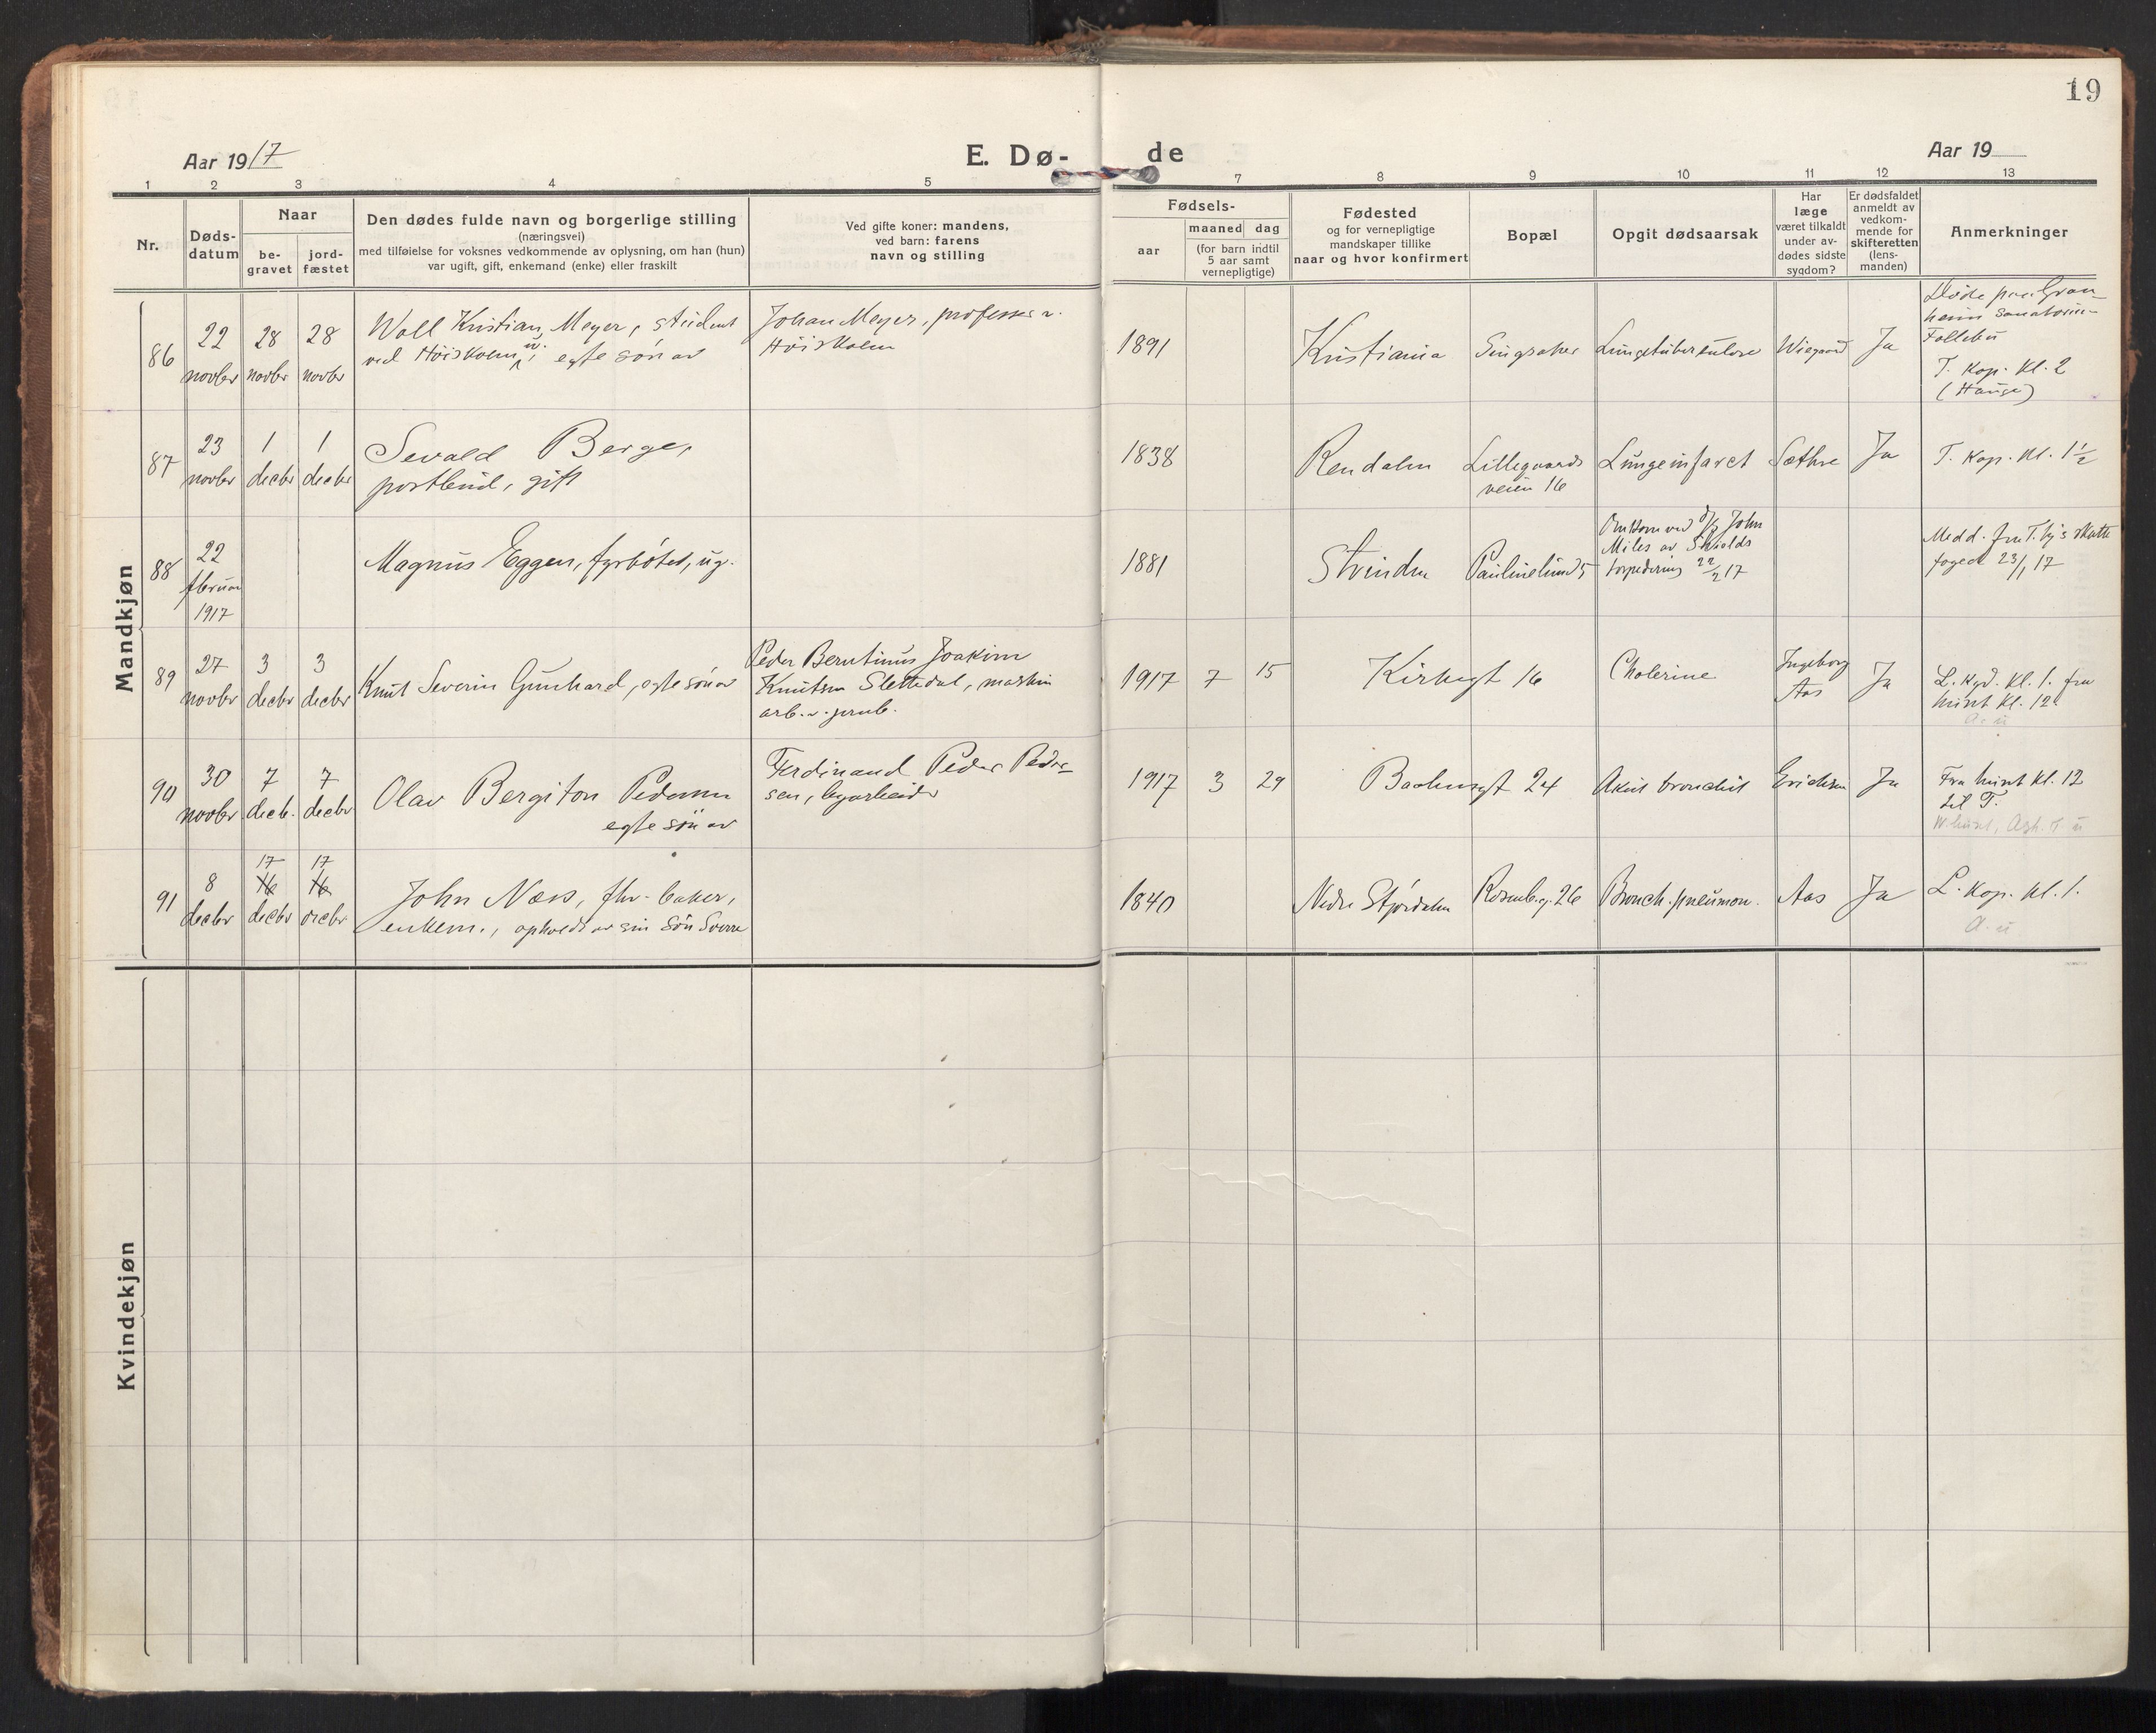 19
Aar 1917
E. Dø-
de
Aar 19
1 2 3 4 5 7 8 9 10 11 12 13
Nr.
Døds-
datum
Naar
be-
gravet
jord-
fæstet
Den dødes fulde navn og borgerlige stilling
(næringsvei)
med tilføielse for voksnes vedkommende av oplysning, om han (hun)
var ugift, gift, enkemand (enke) eller fraskilt
Ved gifte koner: mandens,
ved barn: farens
navn og stilling
Fødsels-
aar
maaned dag
(for barn indtil
5 aar samt
vernepligtige)
Fødested
og for vernepligtige
mandskaper tillike
naar og hvor konfirmert
Bopæl
Opgit dødsaarsak
Har
læge
været tilkaldt
under av-
dødes sidste
sygdom?
Er dødsfaldet
anmeldt av
vedkom-
mende for
skifteretten
(lens-
manden)
Anmerkninger
Mandkjøn
86
22
novbr
28
novbr
28
novbr
Woll Kristian Meyer, student
ved Høiskolen, egte søn av
Johan Meyer, professor v.
Høiskolen
1891
Kristiania
Singsaker
Lungetuberkulose
Wiegaard
Ja
Døde paa Gran-
heim sanatorium
Follebu
T. Kap. Kl. 2
(Hauge)
87
23
novbr
1
decbr
1
decbr
Sevald Berge,
postbud, gift
1838
Rendalen
Lillegaards
veien 16
Lungeinfarct
Sæthre
Ja
T. Kap. Kl. 1 1/2
88
22
februar
1917
Magnus Eggen, fyrbøter, ug.
1881
Strinden
Paulinelund 5
Omkom ved d/s John
Miles av Shields
torpedering 22/2 17
Medd. fra T.hj's skatte
foged 23/1 17
89
27
novbr
3
decbr
3
decbr
Knut Severin Gunhard, egte søn av
Peder Berntinus Joakim
Knutsen Slettedal, maskin
arb. v. jernb.
1917 7 15
Kirkegt 16
Cholerine
Ingeborg
Aas
Ja
L. Kgd. Kl. 1. fra
huset Kl. 12
A. u
90
30
novbr
7
decb.
7
decbr
Olav Bergiton Pedersen
egte søn av
Ferdinand Peder Peder-
sen, bryarbeider
1917 3 29
Baahusgt 24
Akut bronchit
Erichsen
Ja
Fra huset Kl. 12
til T.
91
8
decbr
17
16
decbr
17
16
decbr
John Næss, fhv. baker,
enkem., opholdt av sin søn Sverre
1840
Nedre Stjørdalen
Rosenb.g. 26
Bronch. pneumon.
Aas
Ja
L. Kap. Kl. 1.
A. u
Kvindekjøn